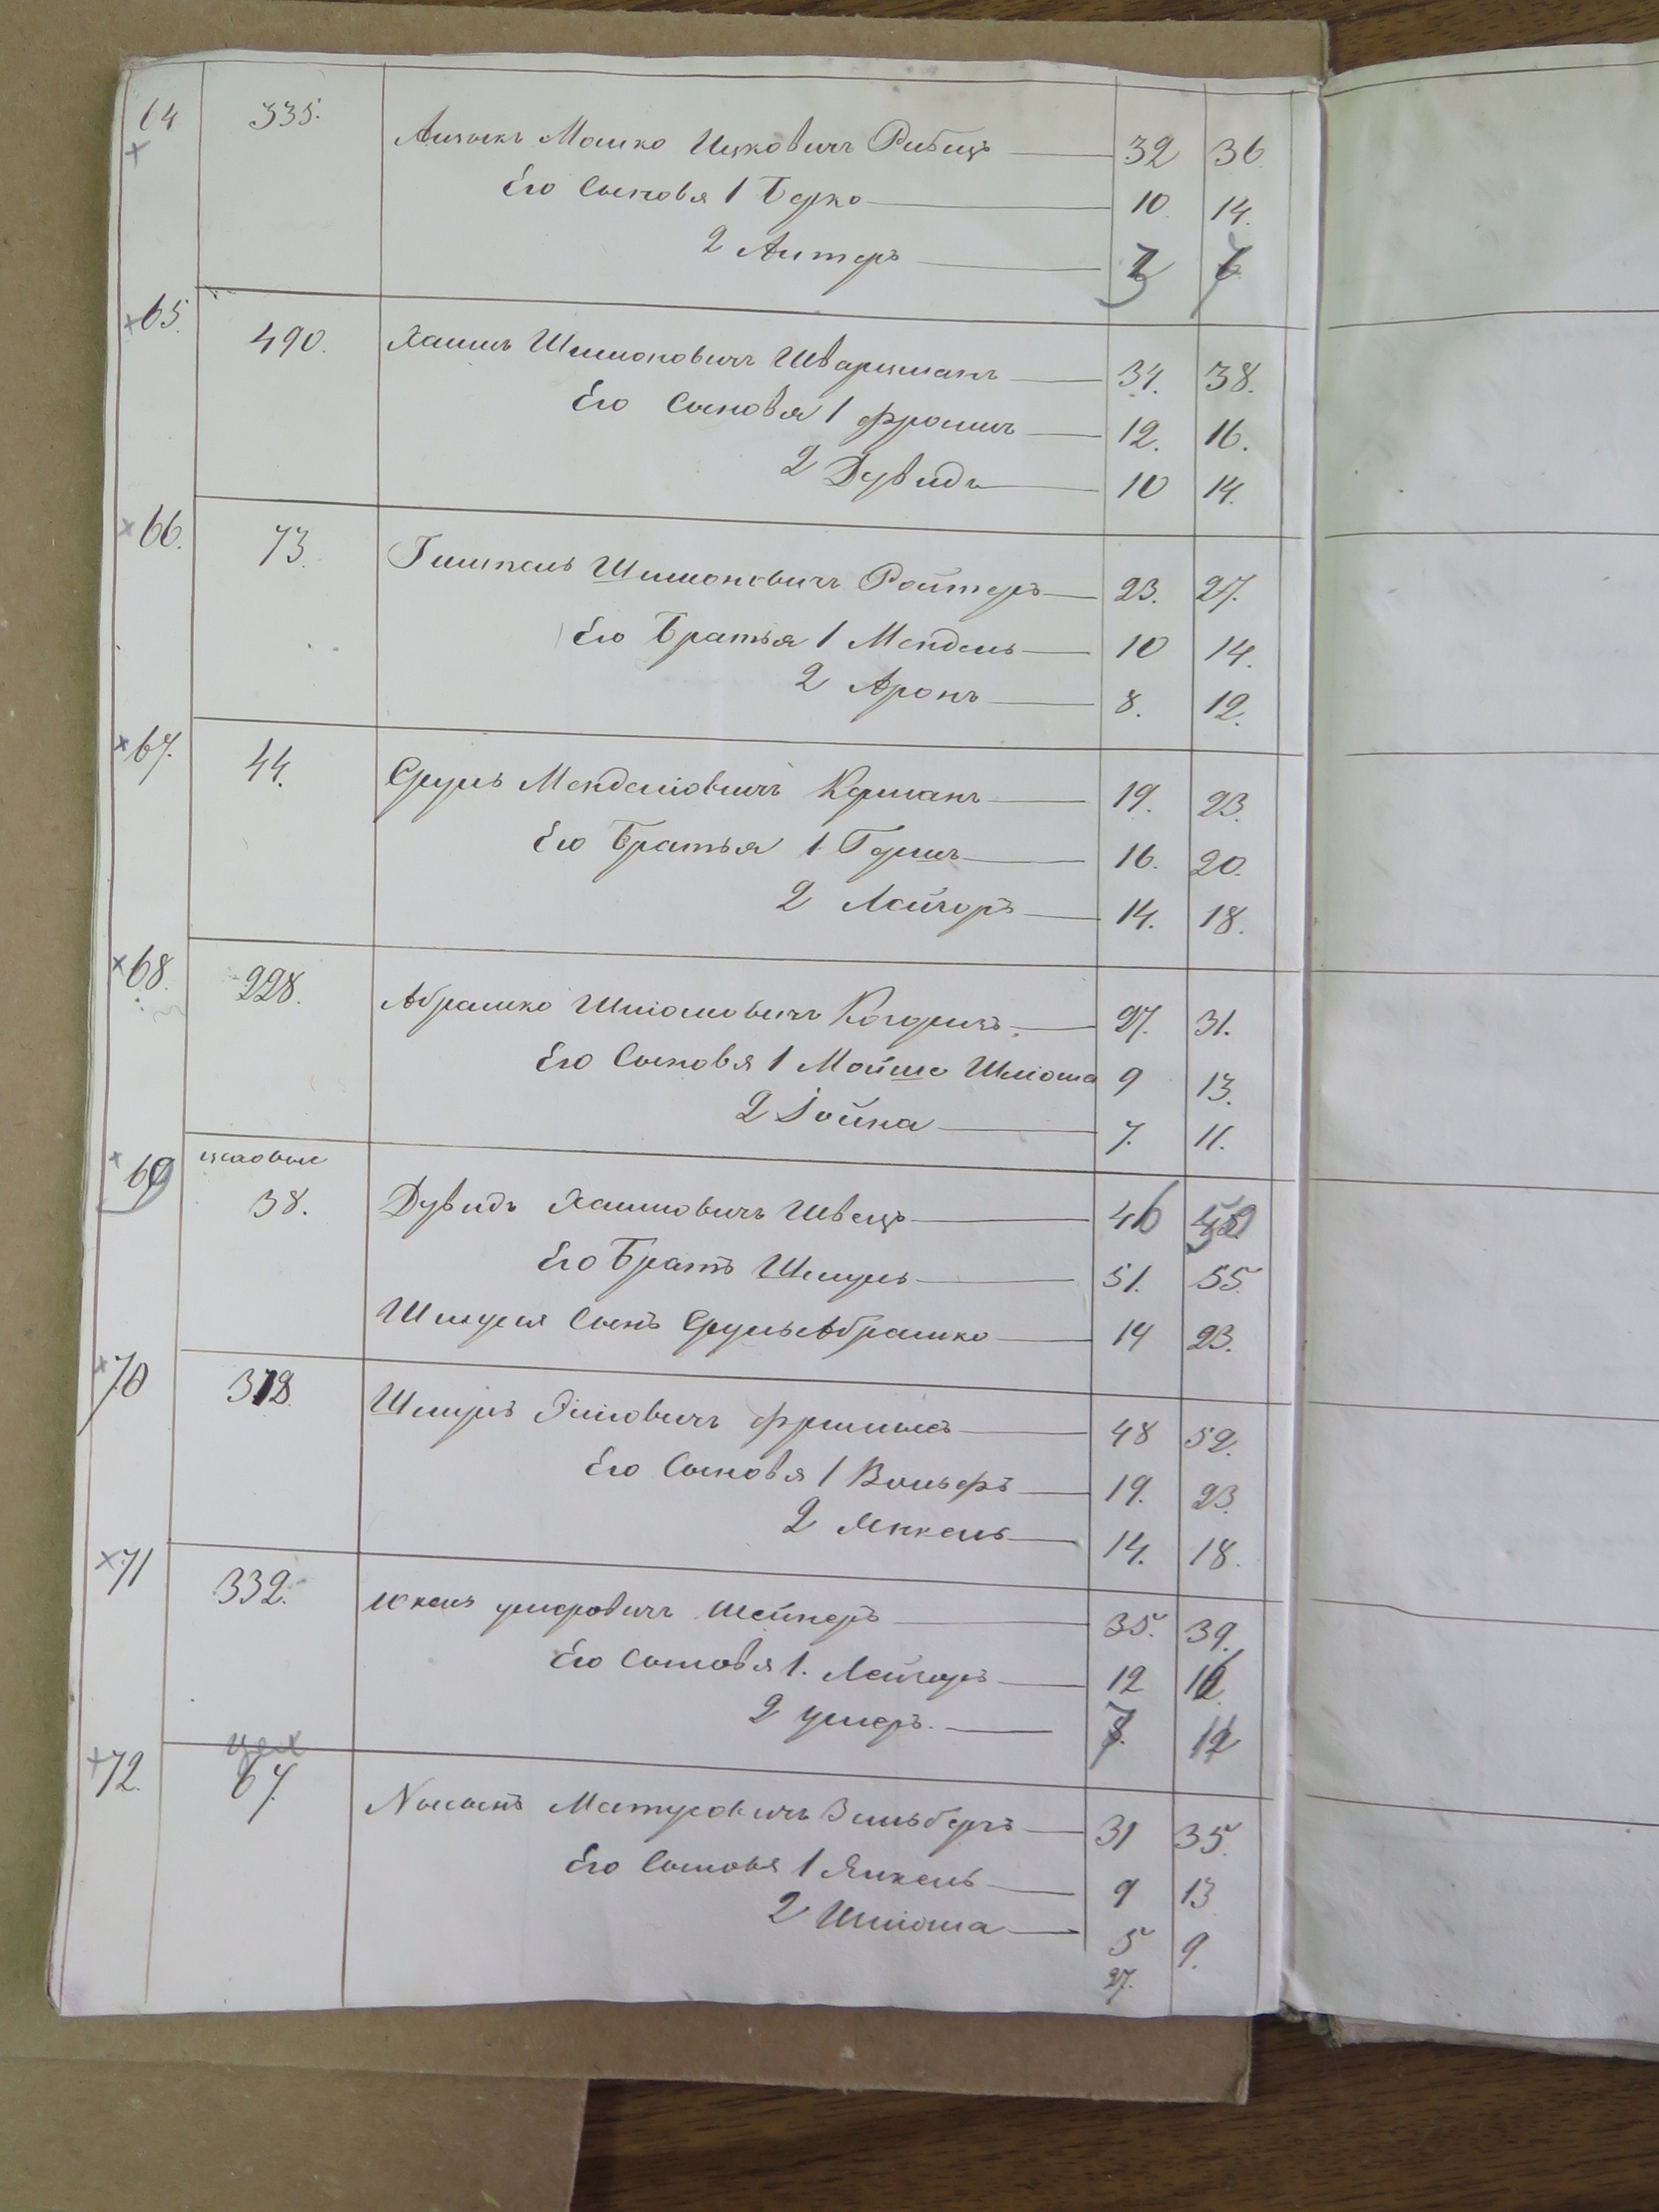 64 335. Аизыкъ Мошко Ицковичъ Рибецъ 32 36.
Его Сыновья 1 Берко 10. 14.
2 Алтеръ 3 7
65. 490. Хаимъ Шимоновичъ Шварцманъ 34. 38.
Его Сыновья 1 Фроимъ 12. 16.
2 Дувидъ 10 14.
66. 73. Гимпель Шимоновичъ Ройтеръ 23. 27.
Его Братья 1 Мендель 10 14.
2 Аронъ 8. 12.
67. 44. Сруль Менделіовичъ Керманъ 19. 23.
Его Братья 1 Гершъ 16. 20.
2 Лейзоръ 14. 18.
68. 228. Абрамко Шліомовичъ 27. 31.
Его Сыновья 1 Мойше Шліома 9 13.
2 Іойна 7. 11.
69 цеховые
38. Дувидъ Хаимовичъ Швецъ 46 50
Его Братъ Шмуль 51. 55.
Шмуля Сынъ Сруль Абрамко 14 23.
70 312. Шмуль Эліовичъ 48 52.
Его Сыновья 1 Вольфъ 19. 23.
2 Янкель 14. 18.
71 332. Юкель Умеровичъ Шейнеръ 35. 39.
Его Сыновья 1. Лейзоръ 12 16.
2 Умеръ. 12
72. цех
67. Зильберъ 31 35.
Его Сыновья 1 Янкель 9 13
2 Шліома 5 9.
27.